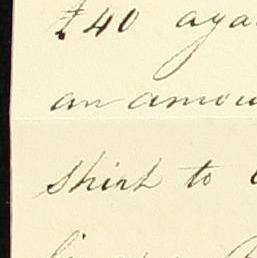 £40 aga
an amou
Shirt to